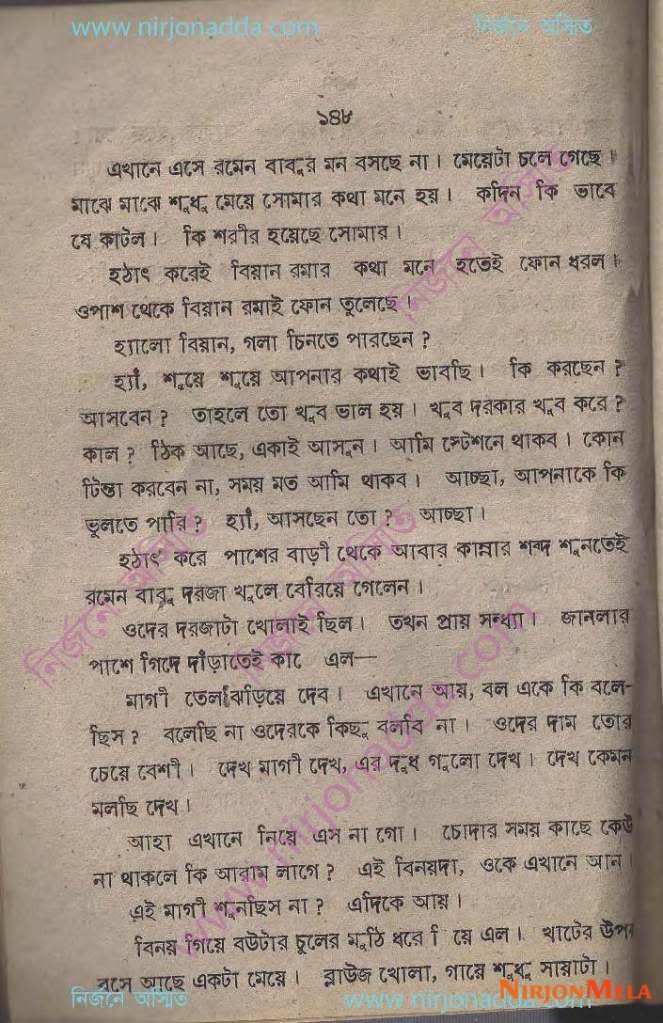 www.nirjonadda.com নির্জনে অস্মিত
১৪৮
এখানে এসে রমেন বাবুর মন বসছে না। মেয়েটা চলে গেছে।
মাঝে মাঝে শুধু মেয়ে সোমার কথা মনে হয়। কদিন কি ভাবে
যে কাটল। কি শরীর হয়েছে সোমার।
হঠাৎ করেই বিয়ান রমার কথা মনে হতেই ফোন ধরল।
ওপাশ থেকে বিয়ান রমাই ফোন তুলেছে।
হ্যালো বিয়ান, গলা চিনতে পারছেন?
হ্যাঁ, শুয়ে শুয়ে আপনার কথাই ভাবছি। কি করছেন?
আসবেন? তাহলে তো খুব ভাল হয়। খুব দরকার খুব করে?
কাল? ঠিক আছে, একাই আসুন। আমি স্টেশনে থাকব। কোন
চিন্তা করবেন না, সময় মত আমি থাকব। আচ্ছা, আপনাকে কি
ভুলতে পারি? হ্যাঁ, আসছেন তো? আচ্ছা।
হঠাৎ করে পাশের বাড়ী থেকে আবার কান্নার শব্দ শুনতেই
রমেন বাবু দরজা খুলে বেরিয়ে গেলেন।
ওদের দরজাটা খোলাই ছিল। তখন প্রায় সন্ধ্যা। জানলার
পাশে গিদে দাঁড়াতেই কাণে এল—
মাগী তেল ঝড়িয়ে দেব। এখানে আয়, বল একে কি বলে-
ছিস? বলেছি না ওদেরকে কিছু বলবি না। ওদের দাম তোর
চেয়ে বেশী। দেখ মাগী দেখ, এর দুধ গুলো দেখ। দেখ কেমন
মলছি দেখ।
আহা এখানে নিয়ে এস না গো। চোদার সময় কাছে কেউ
না থাকলে কি আরাম লাগে? এই বিনয়দা, ওকে এখানে আন।
এই মাগী শুনছিস না? এদিকে আয়।
বিনয় গিয়ে বউটার চুলের মুঠি ধরে এল। খাটের উপর
বসে আছে একটা মেয়ে। ব্লাউজ খোলা, গায়ে শুধু সায়াটা।
নির্জনে অস্মিত www.nirjonadda.com NIRJONMELA
নির্জনে অস্মিত
নির্জনে অস্মিত
নির্জনে অস্মিত
www.nirjonadda.com